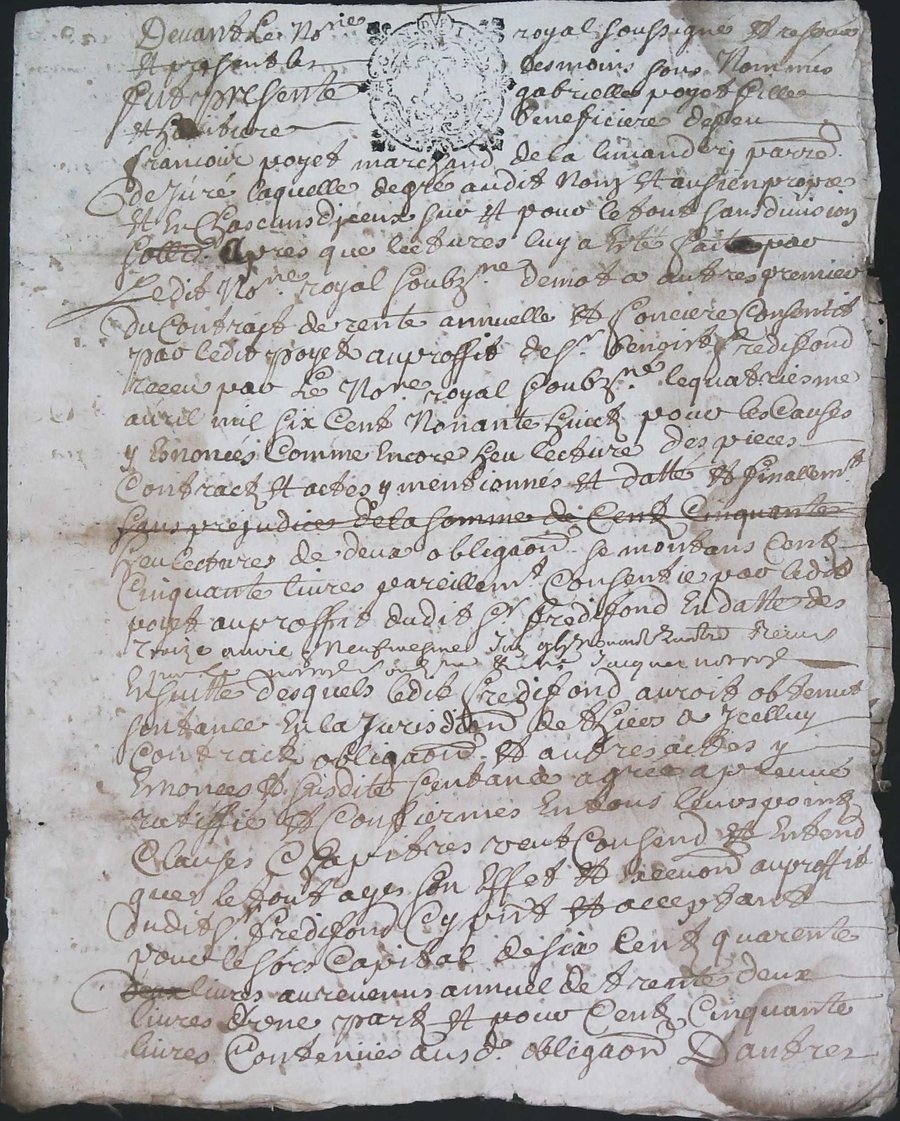 Devant Le No.rie royal soussigné Et
Et presentles tesmoins sous Nommés
fut presente gabrielle poyet fille
et beneficiere de feu
francois poyet marchand de la
de Juré laquelle degré audit Nom Et au sien propre
Et En Chascuns diceux sur Et pour le tout sans division
apres que lectures luy a Esté faite par
Ledit No.re royal soubz.né de mot a autres premier
Du Contract de rente annuelle Et fonciere Consentit
par ledit poyet au proffit de S.r benoist fredifond
receu par Le No.re royal soubz.né le quatriesme
auril mil six Cent Nonante huict pour les Causes
y Enoncés Comme Encore heu lecture des pieces
Contract Et actes y mentionnés Et datté Et finallem.t
sans prejudice de la somme de Cent Cinquante
heu lectures de deux obligaon. se montans Cent
Cinquante livres pareillem.t Consentie par ledit
poyet au proffit dudit S.r fredifond En datte des
Ensuitte desquels ledit fredifond auroit obtenut
sentance En la Jurisdition de a Icelluy
Contract obligaon. Et autres actes y
Enoncés Et susdite sentance agree apreuué
ratiffié Et Confirmés En tous leurs pointz
Clauses Chapitres veut Consend Et Entend
que le tout ayes son Effet Et au proffit
dudit S.r fredifond Cy pnt Et acceptant
pour le sors Capital de six Cent quarente
livres au revenus annuel de trente deux
livres d'une part Et pour Cent Cinquante
livres Contenues aus d. obligaon D'autres